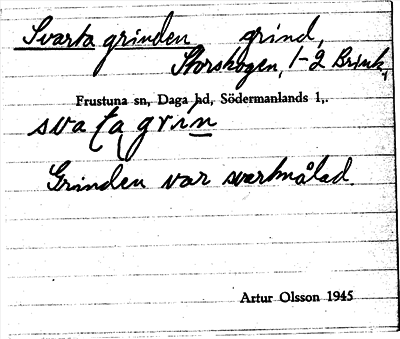 Svarta grinden grind,
Storskogen, 1-2 Brink,
Frustuna sn, Daga hd, Södermanlands l,.
svaʈa grin
Grinden var svartmålad.
Artur Olsson 1945